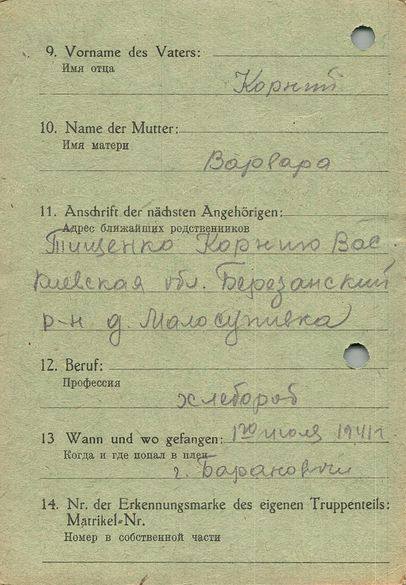 9. Vorname des Vaters:
Имя отца
Корний
10. Name der Mutter:
Имя матери
Варвара
11. Anschrift der nächsten Angehörigen:
Адрес ближайших родственников
Тищенко Корнию Вас
Киевская обл. Березанский
р-н д. Малосупивка
12. Beruf:
Профессия
хлебороб
13 Wann und wo gefangen: июля 1941 г
Когда и где попал в плен
г. Барановичи
14. Nr. der Erkennungsmarke des eigenen Truppenteils:
Matrikel-Nr.
Номер в собственной части